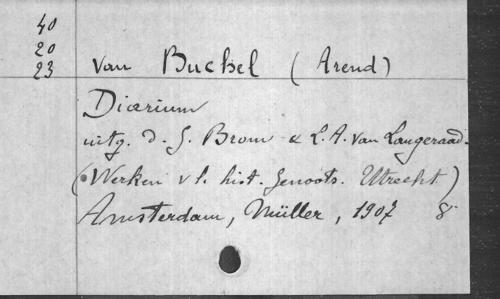 40
20
23 Van Buchel (Arend)
Diarium
uitg. d. G. Brom & L. A. Van Langeraad.
(Werken v h. hist. Genoots. Utrecht)
Amsterdam, Müller, 1907 8°